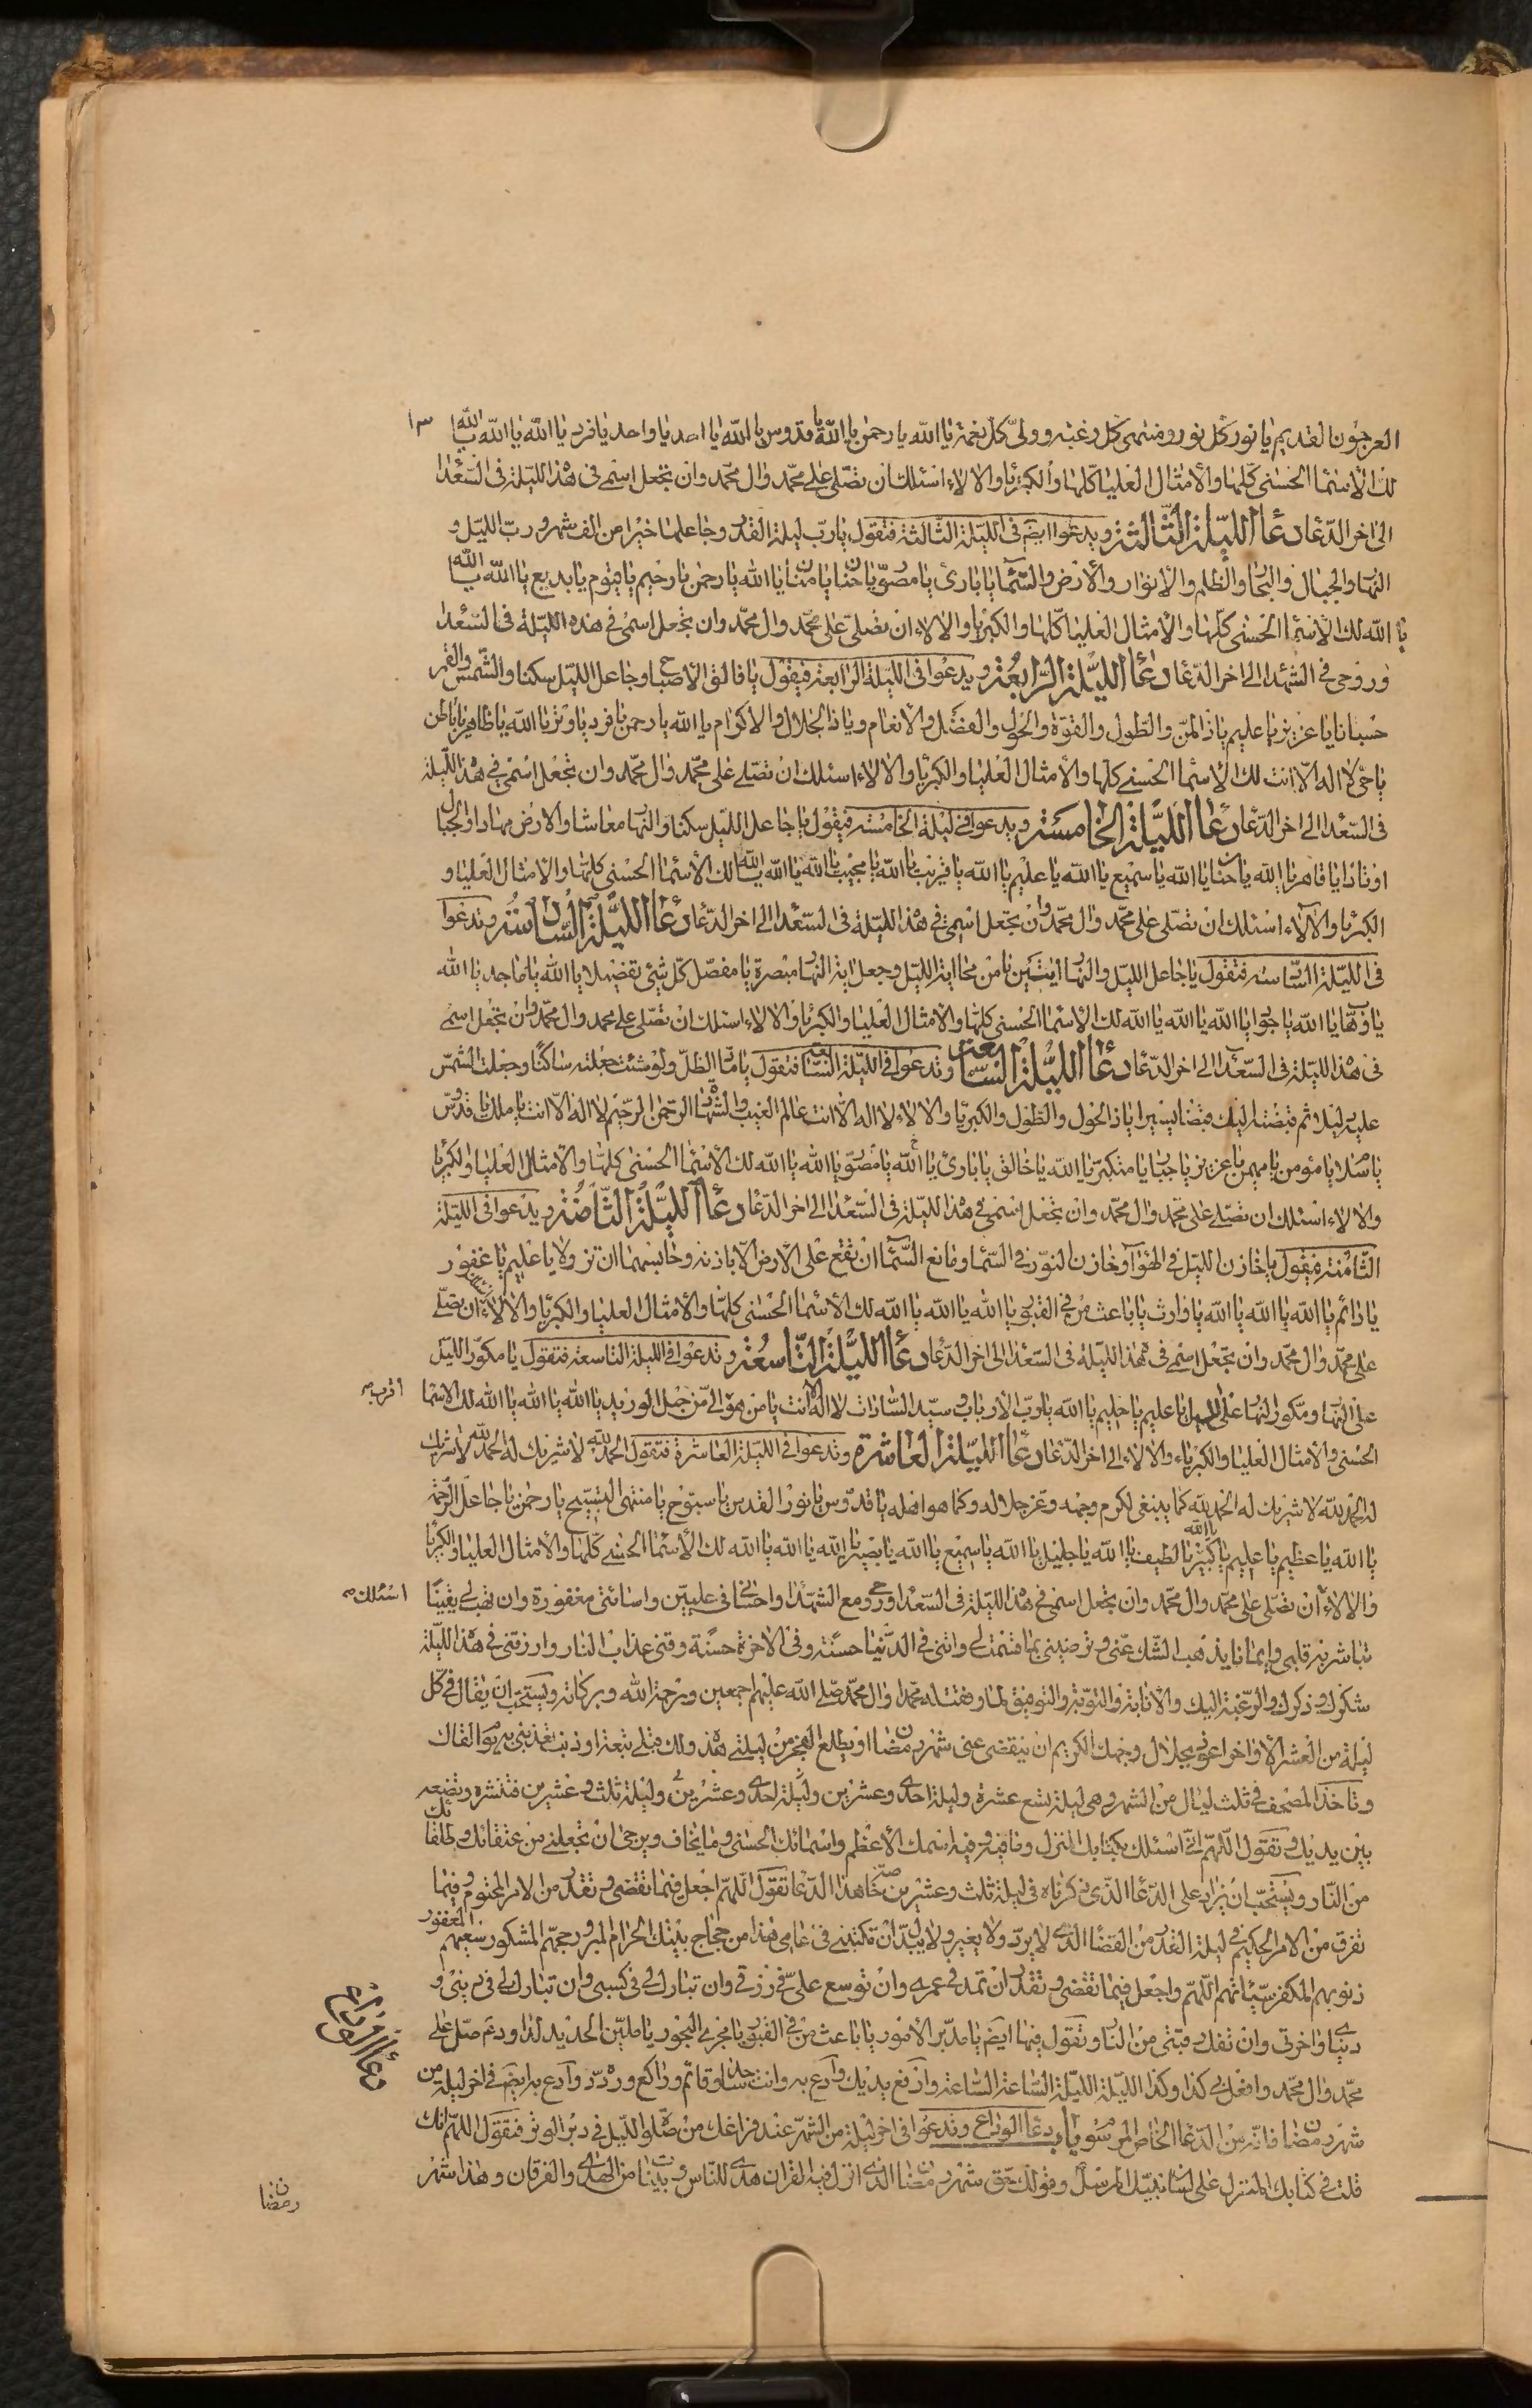 العرجون القديم يا نور كل نور ومنتهى كل رغبة وولي كل نعمة يا الله يا رحمن يا الله يا قدوس يا الله يا احد يا واحد يا فرد يا الله يا الله يا الله
لك الاسماء الحسنى كلها والأمثال العليا كلها والكبرياء والالاء اسئلك ان تصلى على محمد وال محمد وان تجعل اسمى فى هذه الليلة فى السعداء
الى اخر الدعاء دعاء الليلة الثالثة ويدعوا ايضا فى الليلة الثالثة فتقول يا رب ليلة القدر وجاعلها خيرا من الف شهر ورب الليل و
النهار والجبال والبحار والظلم والأنوار والأرض والسماء يا بارئ يا مصور يا حنان يا منان يا الله يا رحمن يا رحيم يا قيوم يا بديع يا الله يا الله
يا الله لك الأسماء الحسنى كلها والأمثال العليا كلها والكبرياء والالاء ان تصلى على محمد وال محمد وان تجعل اسمى فى هذه الليلة فى السعداء
وروحى فى الشهداء الى اخر الدعاء دعاء الليلة الرابعة ويدعوا فى الليلة الرابعة فيقول يا فالق الأصباح وجاعل الليل سكنا والشمس والقمر
حسبانا يا عزيز يا عليم يا ذا المن والطول والقوة والحول والفضل والأنعام ويا ذا الجلال والاكرام يا الله يا رحمن يا فرد يا وتر يا الله يا ظاهر يا باطن
يا حى لا اله الا انت لك الأسماء الحسنى كلها والأمثال العليا والكبرياء والالاء اسئلك ان تصلى على محمد وال محمد وان تجعل اسمى فى هذه الليلة
فى السعداء الى اخر الدعاء دعاء الليلة الخامسة ويدعوا فى ليلة الخامسة فيقول يا جاعل الليل سكنا والنهار معاشا والارض مهادا والجبال
اوتادا يا قاهر يا الله يا حنان يا الله يا سميع يا الله يا عليم يا الله يا قريب يا الله يا مجيب يا الله يا الله يا الله لك الأسماء الحسنى كلها والأمثال العليا و
الكبرياء والآلاء اسئلك ان تصلى على محمد وال محمد وان تجعل اسمى فى هذه الليلة فى السعداء الى اخر الدعاء دعاء الليلة السادسة وتدعوا
فى الليلة السادسة فتقول يا جاعل الليل والنهار ايتين يا من محا اية الليل وجعل اية النهار مبصرة يا مفصل كل شئ تفضيلا يا الله يا ماجد يا الله
يا وهاب يا الله يا جواد يا الله يا الله يا الله لك الأسماء الحسنى كلها والأمثال العليا والكبرياء والالاء اسئلك ان تصلى على محمد وال محمد وان تجعل اسمى
فى هذه الليلة فى السعداء الى اخر الدعاء دعاء الليلة السابعة وتدعوا فى الليلة السابعة فتقول يا ماد الظل ولو شئت جعلته ساكنا وجعلت الشمس
عليه دليلا ثم قبضته اليك قبضا يسيرا يا ذا الحول والطول والكبرياء والالاء لا اله الا انت عالم الغيب والشهادة الرحمن الرحيم لا اله الا انت يا ملك يا قدوس
يا سلام يا مؤمن يا مهيمن يا عزيز يا جبار يا متكبر يا الله يا خالق يا بارئ يا الله يا مصور يا الله يا الله لك الأسماء الحسنى كلها والأمثال العليا والكبرياء
والالاء اسئلك ان تصلى على محمد وال محمد وان تجعل اسمى فى هذه الليلة فى السعداء الى اخر الدعاء دعاء الليلة الثامنة ويدعوا فى الليلة
الثامنة فيقول يا خازن الليل فى الهواء وخازن النور فى السماء ومانع السماء ان تقع على الأرض الا باذنه وحابسهما ان تزولا يا عليم يا غفور
يا دائم يا الله يا الله يا الله يا وارث يا باعث من فى القبور يا الله يا الله يا الله لك الأسماء الحسنى كلها والأمثال العليا والكبرياء والالاء ان تصلى
على محمد وال محمد وان تجعل اسمى فى هذه الليلة فى السعداء الى اخر الدعاء دعاء الليلة التاسعة وتدعوا فى الليلة التاسعة فتقول يا مكور الليل
على النهار ومكور النهار على الليل يا عليم يا حليم يا الله يا رب الأرباب وسيد السادات لا اله الا انت يا من هو الى من حبل الوريد يا الله يا الله يا الله لك الأسماء
اقرب
الحسنى والأمثال العليا والكبرياء والالاء الى اخر الدعاء دعاء الليلة العاشرة وتدعوا فى الليلة العاشرة فتقول الحمد لله لا شريك له الحمد لله لا شريك
له الحمد لله لا شريك له الحمد لله كما ينبغى لكرم وجهه وعز جلاله وكما هو اهله يا قدوس يا نور القدس يا سبوح يا منتهى التسبيح يا رحمن يا جاعل الرحمة
يا الله يا عظيم يا عليم يا كبير يا الله يا لطيف يا الله يا جليل يا الله يا سميع يا الله يا بصير يا الله يا الله يا الله لك الأسماء الحسنى كلها والأمثال العليا والكبرياء
والالاء ان تصلى على محمد وال محمد وان تجعل اسمى فى هذه الليلة فى السعداء وروحى مع الشهداء واحسانى فى عليين واسائتى مغفورة وان تهب لى يقينا
اسئلك
تباشر به قلبى وايمانا يذهب الشك عنى وترضينى بما قسمت لى واتنى فى الدنيا حسنة وفى الاخرة حسنة وقنى عذاب النار وارزقنى فى هذه الليلة
شكرك وذكرك والرغبة اليك والانابة والتوبة والتوفيق لما وفقت له محمدا وال محمد صلى الله عليهم اجمعين ورحمة الله وبركاته ويستحب ان يقال فى كل
ليلة من العشر الاواخر اعوذ بجلال وجهك الكريم ان ينقضى عنى شهر رمضان او يطلع الفجر من ليلتى هذه ولك قبلى تبعة او ذنب تعذبنى به يوم القاك
وتأخذ المصحف فى ثلث ليال من الشهر وهى ليلة تسع عشرة وليلة احدى وعشرين وليلة ثلث وعشرين فتنشره وتضعه
بين يديك وتقول اللهم انى اسئلك بكتابك المنزل وما فيه وفيه اسمك الأعظم واسمائك الحسنى وما يخاف ويرجى ان تجعلنى من عتقائك وطلقائك
من النار ويستحب ان يزاد على الدعاء الذى ذكرناه فى ليلة ثلث وعشرين هذا الدعاء تقول اللهم اجعل فيما تقضى وتقدر من الامر المحتوم وفيما
تفرق من الامر الحكيم فى ليلة القدر من القضاء الذى لا يرد ولا يغير ولا يبدل ان تكتبنى فى عامى هذا من حجاج بيتك الحرام المبرور حجهم المشكور سعيهم المغفور
ذنوبهم المكفر سيئاتهم اللهم واجعل فيما تقضى وتقدر ان تمد فى عمرى وان توسع على فى رزقى وان تبارك لى فى كسبى وان تبارك لى فى دينى و
دنياى واخرتى وان تفك رقبتى من النار وتقول فيها ايضا يا مدبر الأمور يا باعث من فى القبور يا مجرى البحور يا ملين الحديد لداود صل على
محمد وال محمد وافعل بى كذا وكذا الليلة الليلة الساعة الساعة وارفع يديك وادع به وانت ساجد وقائم وراكع وردد وادع به ايضا فى اخر ليلة من
شهر رمضان فانه من الدعاء الخاص المرسوم باب دعاء الوداع وتدعوا فى اخر ليلة من الشهر عند فراغك من صلوة الليل فى دبر الوتر فتقول اللهم انك
دعاء الوداع
قلت فى كتابك المنزل على لسان نبيك المرسل وقولك حق شهر رمضان الذى انزل فيه القران هدى للناس وبينات من الهدى والفرقان وهذا شهر
رمضان